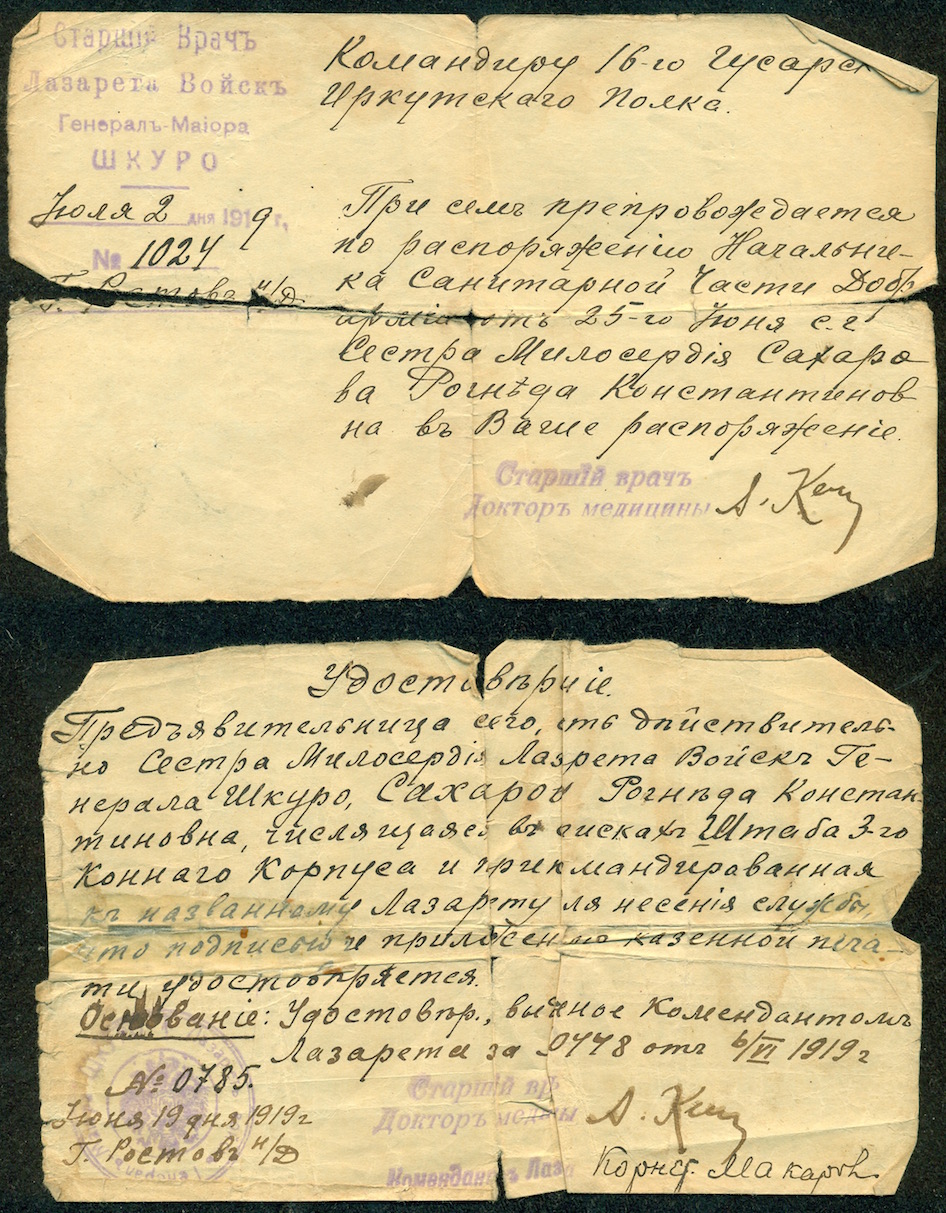 Старшій Врачъ
Лазарета Войскъ
Генералъ-Маіора
ШКУРО
Іюля 2 дня 1919 г.,
№ 1024
Г. Ростовъ н/Д
Командиру 16-го Гусарск
Иркутскаго Полка.
При семъ препровождается
по распоряженію Начальни-
ка Санитарной Части Добр
арміи отъ 25-го Іюня с.г
Сестра Милосердія Сахаро
ва Рогнѣда Константинов
на въ Ваше распоряженіе.
Старшій врачъ
Докторъ медицины
Удостовѣрніе.
Предъявительница сего, есть дѣйствитель-
но Сестра Милосердія Лазрета Войскъ Ге-
нерала Шкуро, Сахаров Рогнѣда Констан-
тиновна, числящаяс въ списках Штаба 3-го
Коннаго Корпуса и прикмандированная
къ названному Лазарету ля несенія службы,
что подписью и приложен казенной печа-
ти удостовѣряется.
Основаніе: Удостовѣр., выдное Комендантомъ
Лазарета за 0448 отъ 6/VI 1919 г
№ 0785.
Іюня 19 дня 1919 г
Г. Ростовъ н/Д
Старшій вр
Докторъ медины
Комендантъ Лаза
Корнет. Макаровъ